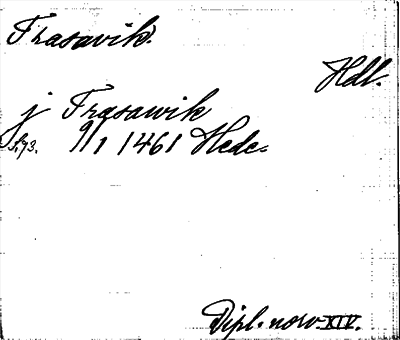 Frasavik.
Hdl.
j Frasawik
S.93. 9/1 1461 Hede.
Dipl. norv XIV.